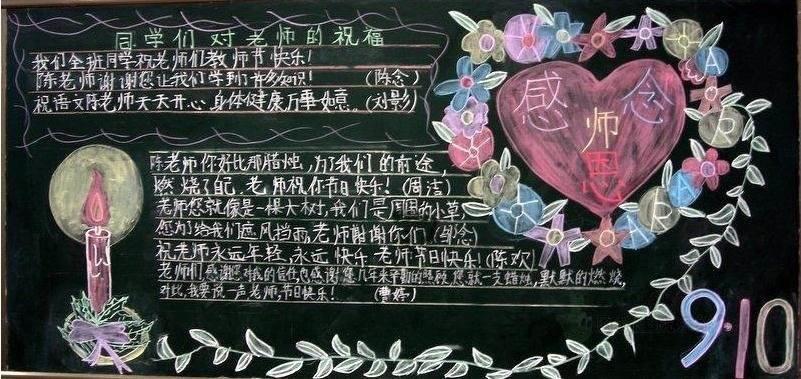 同学们对老师的祝福
我们全班同学祝老师们教师节快乐!
陈老师谢谢您让我们学到了许多知识! (陈念)
祝语文陈老师天天开心身体健康万事如意。(刘影)
感念
师
恩
陈老师你好比那腊烛,为了我们的前途,
燃烧了自己,老师祝你节日快乐!(周洁)
老师您就像是一棵大树,我们是周围的小草,
您为了给我们遮风挡雨,老师谢谢你们(邹念)
祝老师永远年轻,永远快乐 老师节日快乐!(陈欢)
老师们感谢您对我的信任也感谢您几年来辛勤的照顾您就一支蜡烛,默默的燃烧,
对比,我要说一声老师,节日快乐! (曹婷)
9.10